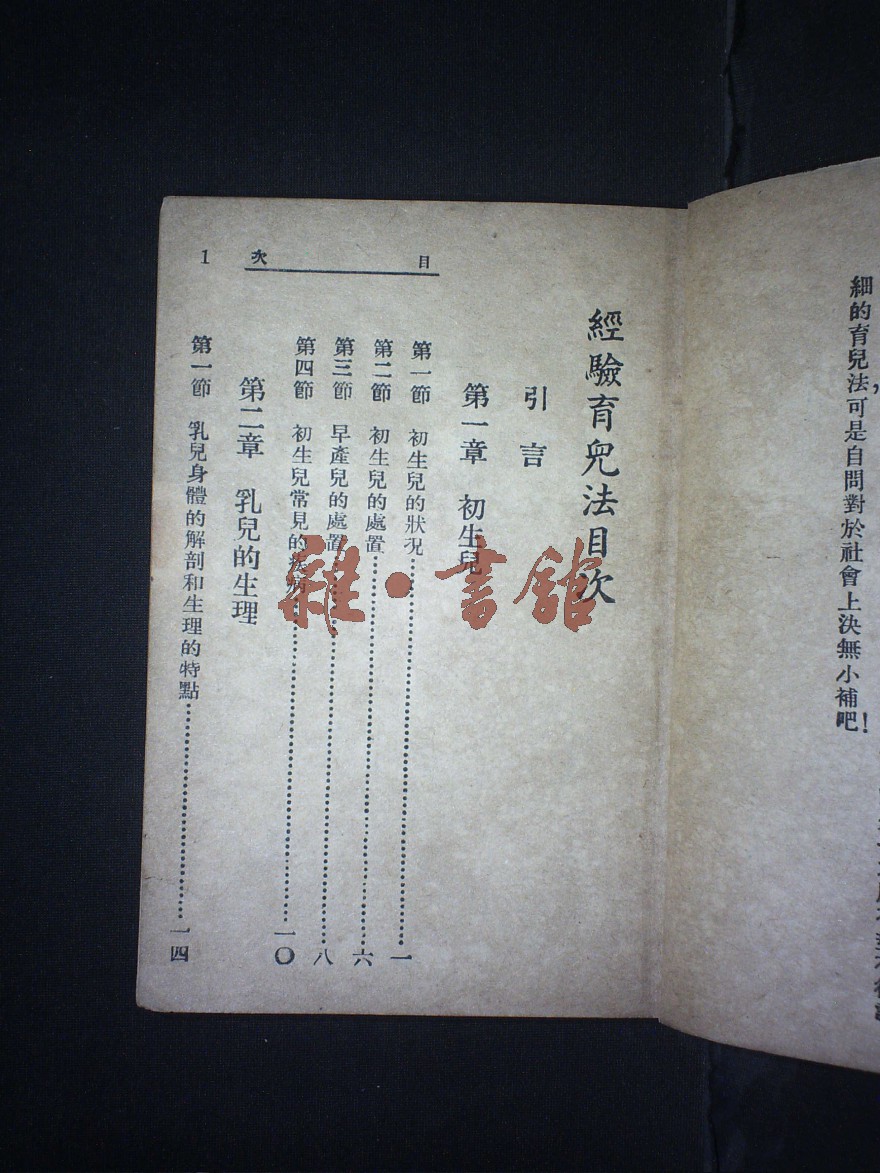 細的育兒法，可是自問對於社會上決無小補吧！
目次 1
經驗育兒法目次
引言
第一章 初生兒
第一節 初生兒的狀況……一
第二節 初生兒的處置……六
第三節 早產兒的處置……八
第四節 初生兒常見的疾病……一〇
第二章 乳兒的生理
第一節 乳兒身體的解剖和生理的特點……一四
雜·書館